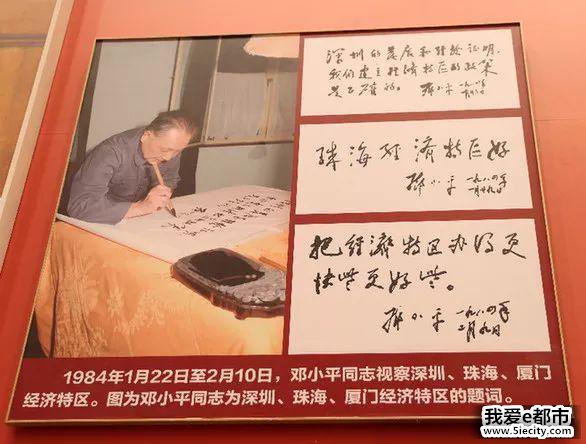 深圳的发展和经验证明,
我们建立经济特区的政策
是正确的。 邓小平 一九八四年
珠海经济特区好
邓小平 一九八四年
一月廿九日
把经济特区办得更
快些更好些。
邓小平 一九八四年
二月九日
1984年1月22日至2月10日，邓小平同志视察深圳、珠海、厦门
经济特区。图为邓小平同志为深圳、珠海、厦门经济特区的题词。
我爱e都市
www.5iecity.com